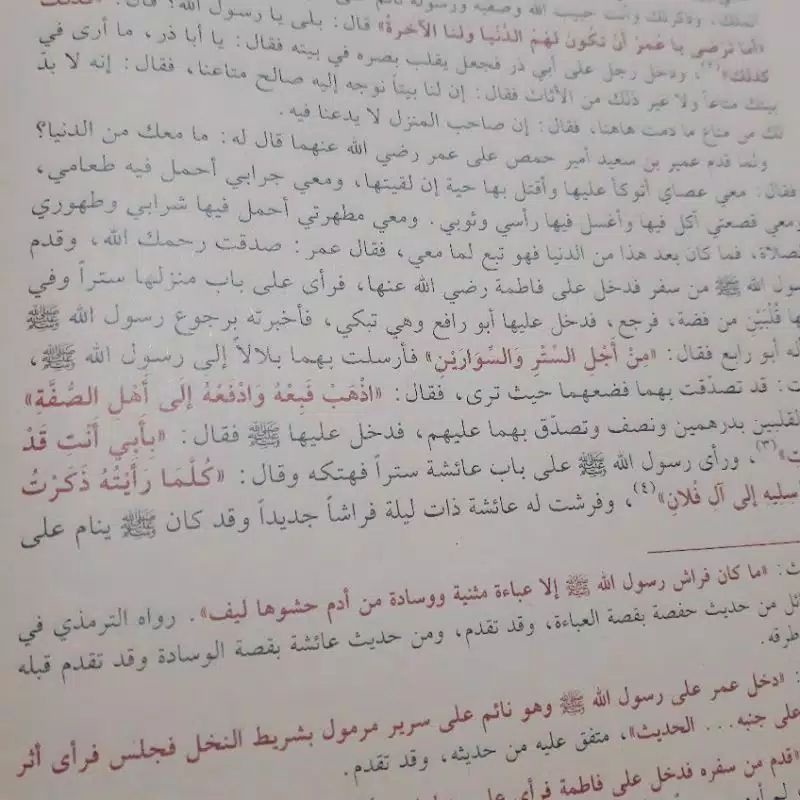 لنفسك، وذكرتك وأنت حبيب الله وصفيه ورسوله نائم على
«أما ترضى يا عمرُ أنْ تكُونَ لهُمْ الدُّنيا ولنا الآخرةُ» قال: بلى يا رسول الله؟ قال:
كذلك»(٢)، ودخل رجل على أبي ذر فجعل يقلب بصره في بيته فقال: يا أبا ذر، ما أرى في
بيتك متاعاً ولا غير ذلك من الأثاث فقال: إن لنا بيتاً نوجه إليه صالح متاعنا، فقال: إنه لا بدّ
لك من متاع ما دمت هاهنا، فقال: إن صاحب المنزل لا يدعنا فيه.
ولما قدم عمير بن سعيد أمير حمص على عمر رضي الله عنهما قال له: ما معك من الدنيا؟
فقال: معي عصاي أتوكأ عليها وأقتل بها حية إن لقيتها، ومعي جرابي أحمل فيه طعامي،
ومعي قصعتي آكل فيها وأغسل فيها رأسي وثوبي. ومعي مطهرتي أحمل فيها شرابي وطهوري
للصلاة، فما كان بعد هذا من الدنيا فهو تبع لما معي، فقال عمر: صدقت رحمك الله، وقدم
رسول الله ﷺ من سفر فدخل على فاطمة رضي الله عنها، فرأى على باب منزلها ستراً وفي
قُلْبَيْنِ من فضة، فرجع، فدخل عليها أبو رافع وهي تبكي، فأخبرته برجوع رسول الله ﷺ
أبو رابع فقال: «مِنْ أَجْلِ السِّتْرِ وَالسِّوَارَيْنِ» فأرسلت بهما بلالاً إلى رسول الله ﷺ،
قد تصدّقت بهما فضعهما حيث ترى، فقال: «اذْهَبْ فَبِعْهُ وَادْفَعْهُ إلَى أَهْلِ الصُّفَّةِ»
القلبين بدرهمين ونصف وتصدّق بهما عليهم، فدخل عليها ﷺ فقال: «بِأَبِي أَنْتِ قَدْ
»(٣)، ورأى رسول الله ﷺ على باب عائشة ستراً فهتكه وقال: «كُلَّمَا رَأَيْتُهُ ذَكَرْتُ
إلى آل فُلانٍ»(٤)، وفرشت له عائشة ذات ليلة فراشاً جديداً وقد كان ﷺ ينام على
«ما كان فراش رسول الله ﷺ إلا عباءة مثنية ووسادة من أدم حشوها ليف». رواه الترمذي في
من حديث حفصة بقصة العباءة، وقد تقدم، ومن حديث عائشة بقصة الوسادة وقد تقدم قبله
طرقه.
«دخل عمر على رسول الله ﷺ وهو نائم على سرير مرمول بشريط النخل فجلس فرأى أثر
على جنبه... الحديث»، متفق عليه من حديثه، وقد تقدم.
«قدم من سفره فدخل على فاطمة فرأى على